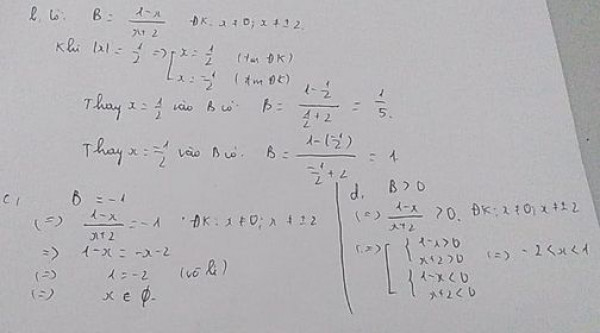 b. Có: B = (1-x)/(x+2) ĐK: x ≠ 0; x ≠ ±2.
Khi |x| = 1/2 => [ x = 1/2 (tm ĐK)
x = -1/2 (tm ĐK)
Thay x = 1/2 vào B có: B = (1 - 1/2)/(1/2 + 2) = 1/5.
Thay x = -1/2 vào B có: B = (1-(-1/2))/(-1/2 + 2) = 1
c, B = -1
(=) (1-x)/(x+2) = -1 ĐK: x ≠ 0; x ≠ ±2
=> 1-x = -x-2
(=) 1 = -2 (vô lí)
(=) x ∈ ∅.
d. B > 0
(=) (1-x)/(x+2) > 0. ĐK: x ≠ 0; x ≠ ±2
(=) [ { 1-x > 0
x+2 > 0 (=) -2 < x < 1
{ 1-x < 0
x+2 < 0